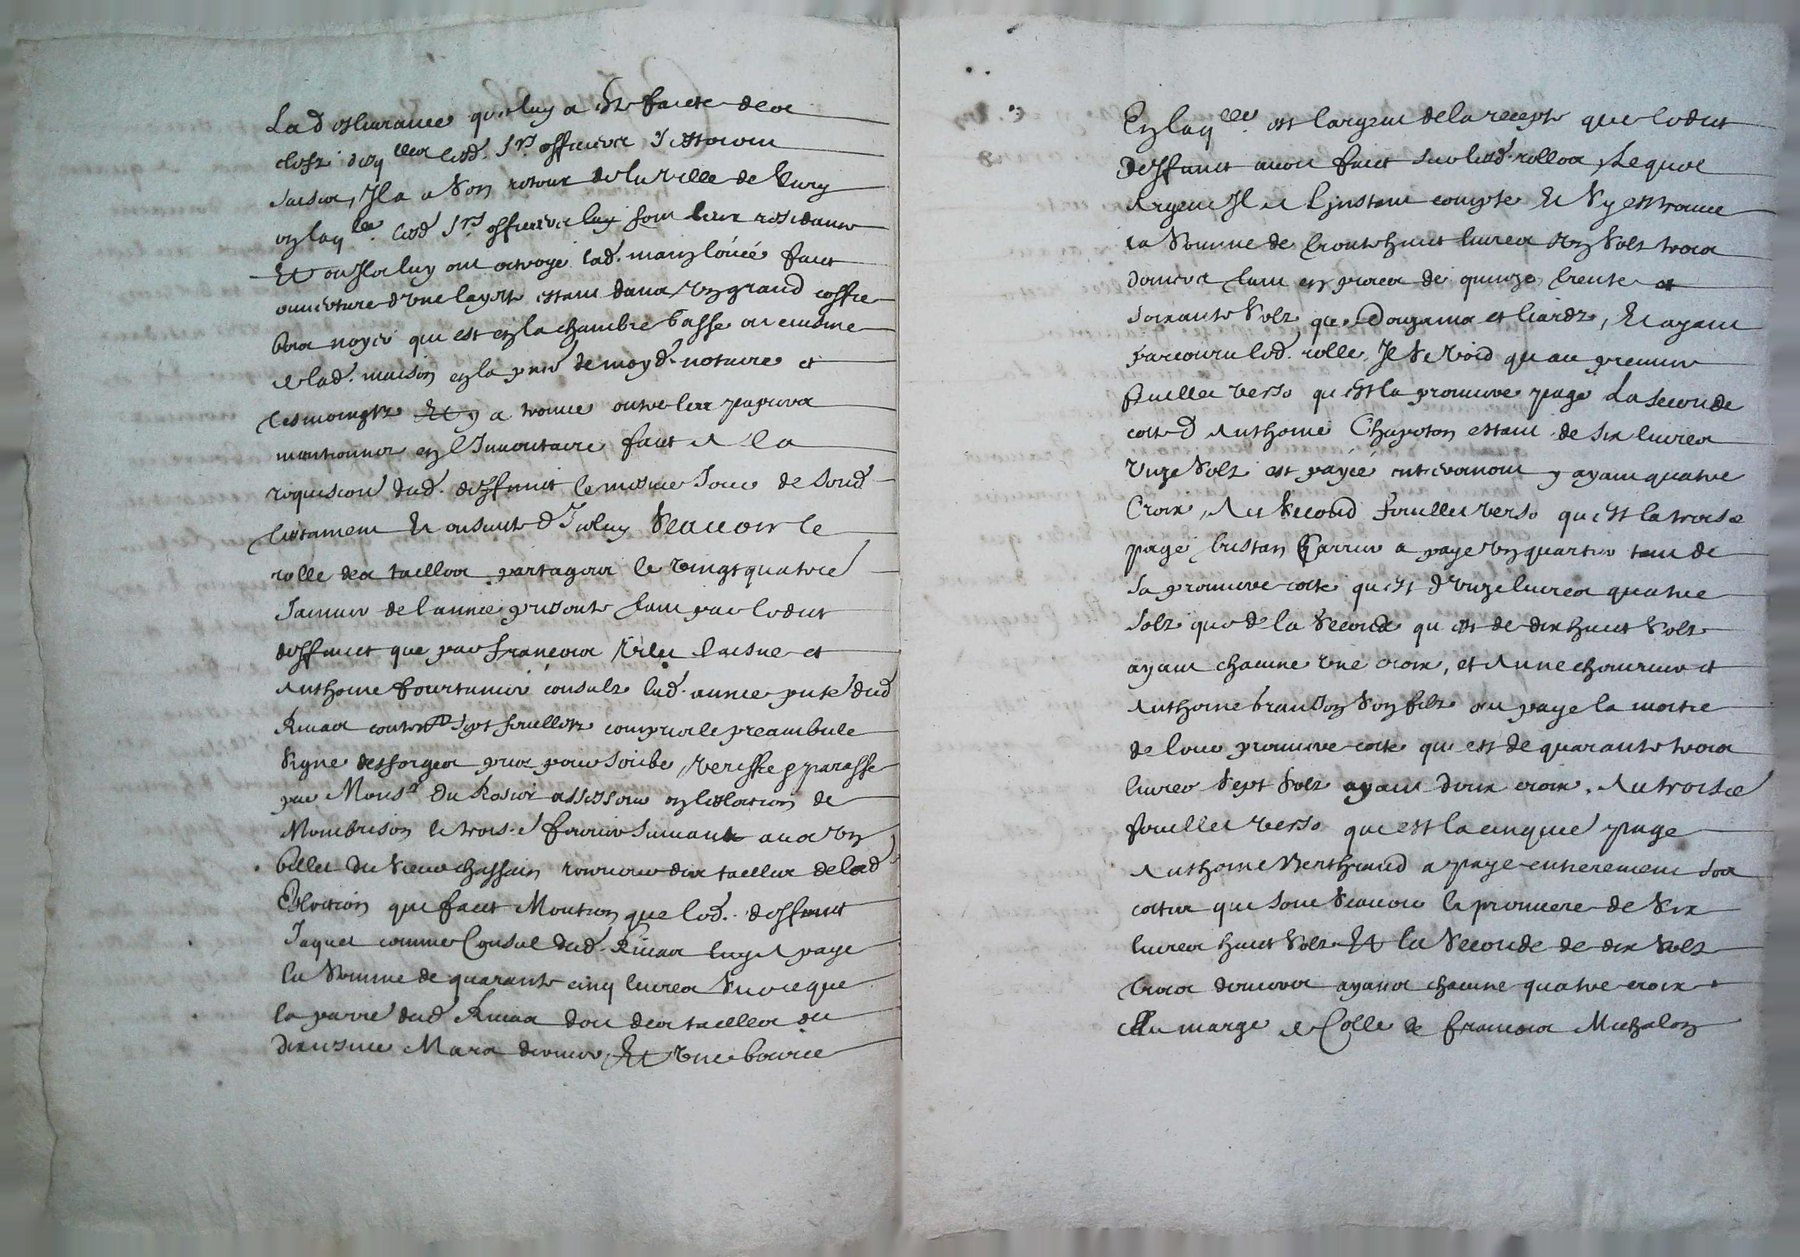 La deslivrance qui luy a este faicte des
clefz desq lles lesd. Srs officiers s'estoient
saisies, Il a a son retour de la ville de Cury
en laq lle. lesd Srs officiers luy font leur residance
Et ou Ilz luy ont octroyé lad. main levée faict
ouverture d'une layette estant dans un grand coffre
bois noyer qui est en la chambre basse ou cuisine
de lad. maison en la pnce de moyd. notaire et
tesmoingtz Et y a trouvé outre les papiers
mentionnes en l'Inventaire faict a la
requision dud. deffunct le mesme Jour de sond
testament Et ensuitte d'Iceluy Scavoir le
rolle des tailles partagées le vingt quatre
Janvier de l'année presente tant par ledict
deffunct que par Francois laisne et
Anthoine fourtunier consulz lad. année pnte dud
Rivas contnt sept feuilletz compris le preambule
Signe desforges pris pour scribe, veriffie & paraffe
par Monsr Du Rosier assesseur en l'eslection de
Monbrison le trois.e febvrier suivant avec un
billet du sieur chassain receveur des tailles de lad
Eslection qui faict Mention que led. deffunct
Jaques comme Consul dud. Rivas luy a payé
la somme de quarante cinq livres sur ce que
la parre dud Rivas doit des tailles du
dixiesme Mars dernier, Et une bource
En laq lle. est l'argent de la recepte que ledict
deffunct avoit faict sur lesd. rolles, Lequel
Argent Il a l'Instant compté Et s'y est trouvé
la somme de trente huict livres un solz trois
deniers tant en pieces de quinze, trente et
soixante solz, que Douzains et liardz, Et ayant
parcouru led. rolle Il se void qu'au premier
feuillet verso qui est la premiere page La seconde
cotte d Anthoine Chapoton estant de six livres
unze solz est payée entierement y ayant quatre
Croix, Au second feuillet verso qui est la trois.e
page, tristan Carrier a payé un quartier tant de
sa premiere cotte qui est d'unze livres quatre
solz que de la seconde qui est de dix huict solz
ayant chacune une croix, et Anne et
Anthoine son filz ont payé la moitié
de leur premiere cotte qui est de quarante trois
livres sept solz ayant deux croix. Au trois.e
feuillet verso qui est la cinquie page
Anthoine Bertheaud a payé entierement ses
cottes qui sont scavoir la premiere de six
livres huict solz Et la seconde de dix solz
trois deniers ayans chacune quatre croix.
Au marge a Colle de francois Michalon